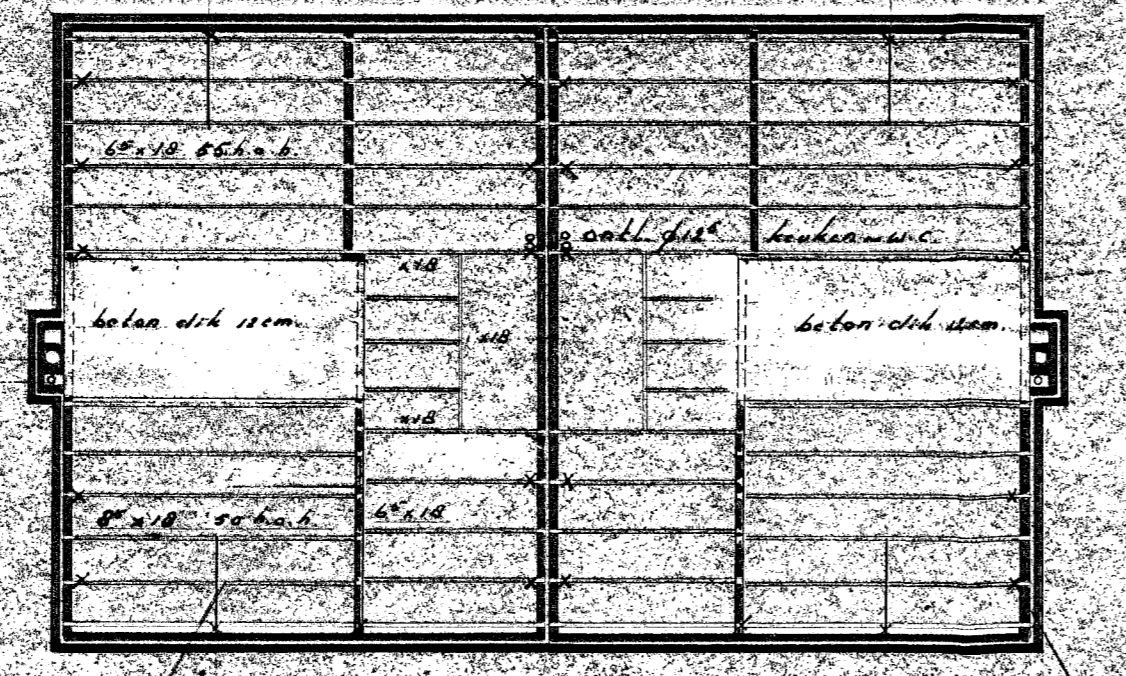 6⁵ x 18 55 h.o.h.
ontl. ø 12⁵ keuken en w.c.
x18
beton dik 12 cm.
x18
beton dik 12 cm.
x18
8⁵ x 18 50 h.o.h.
6⁵ x 18